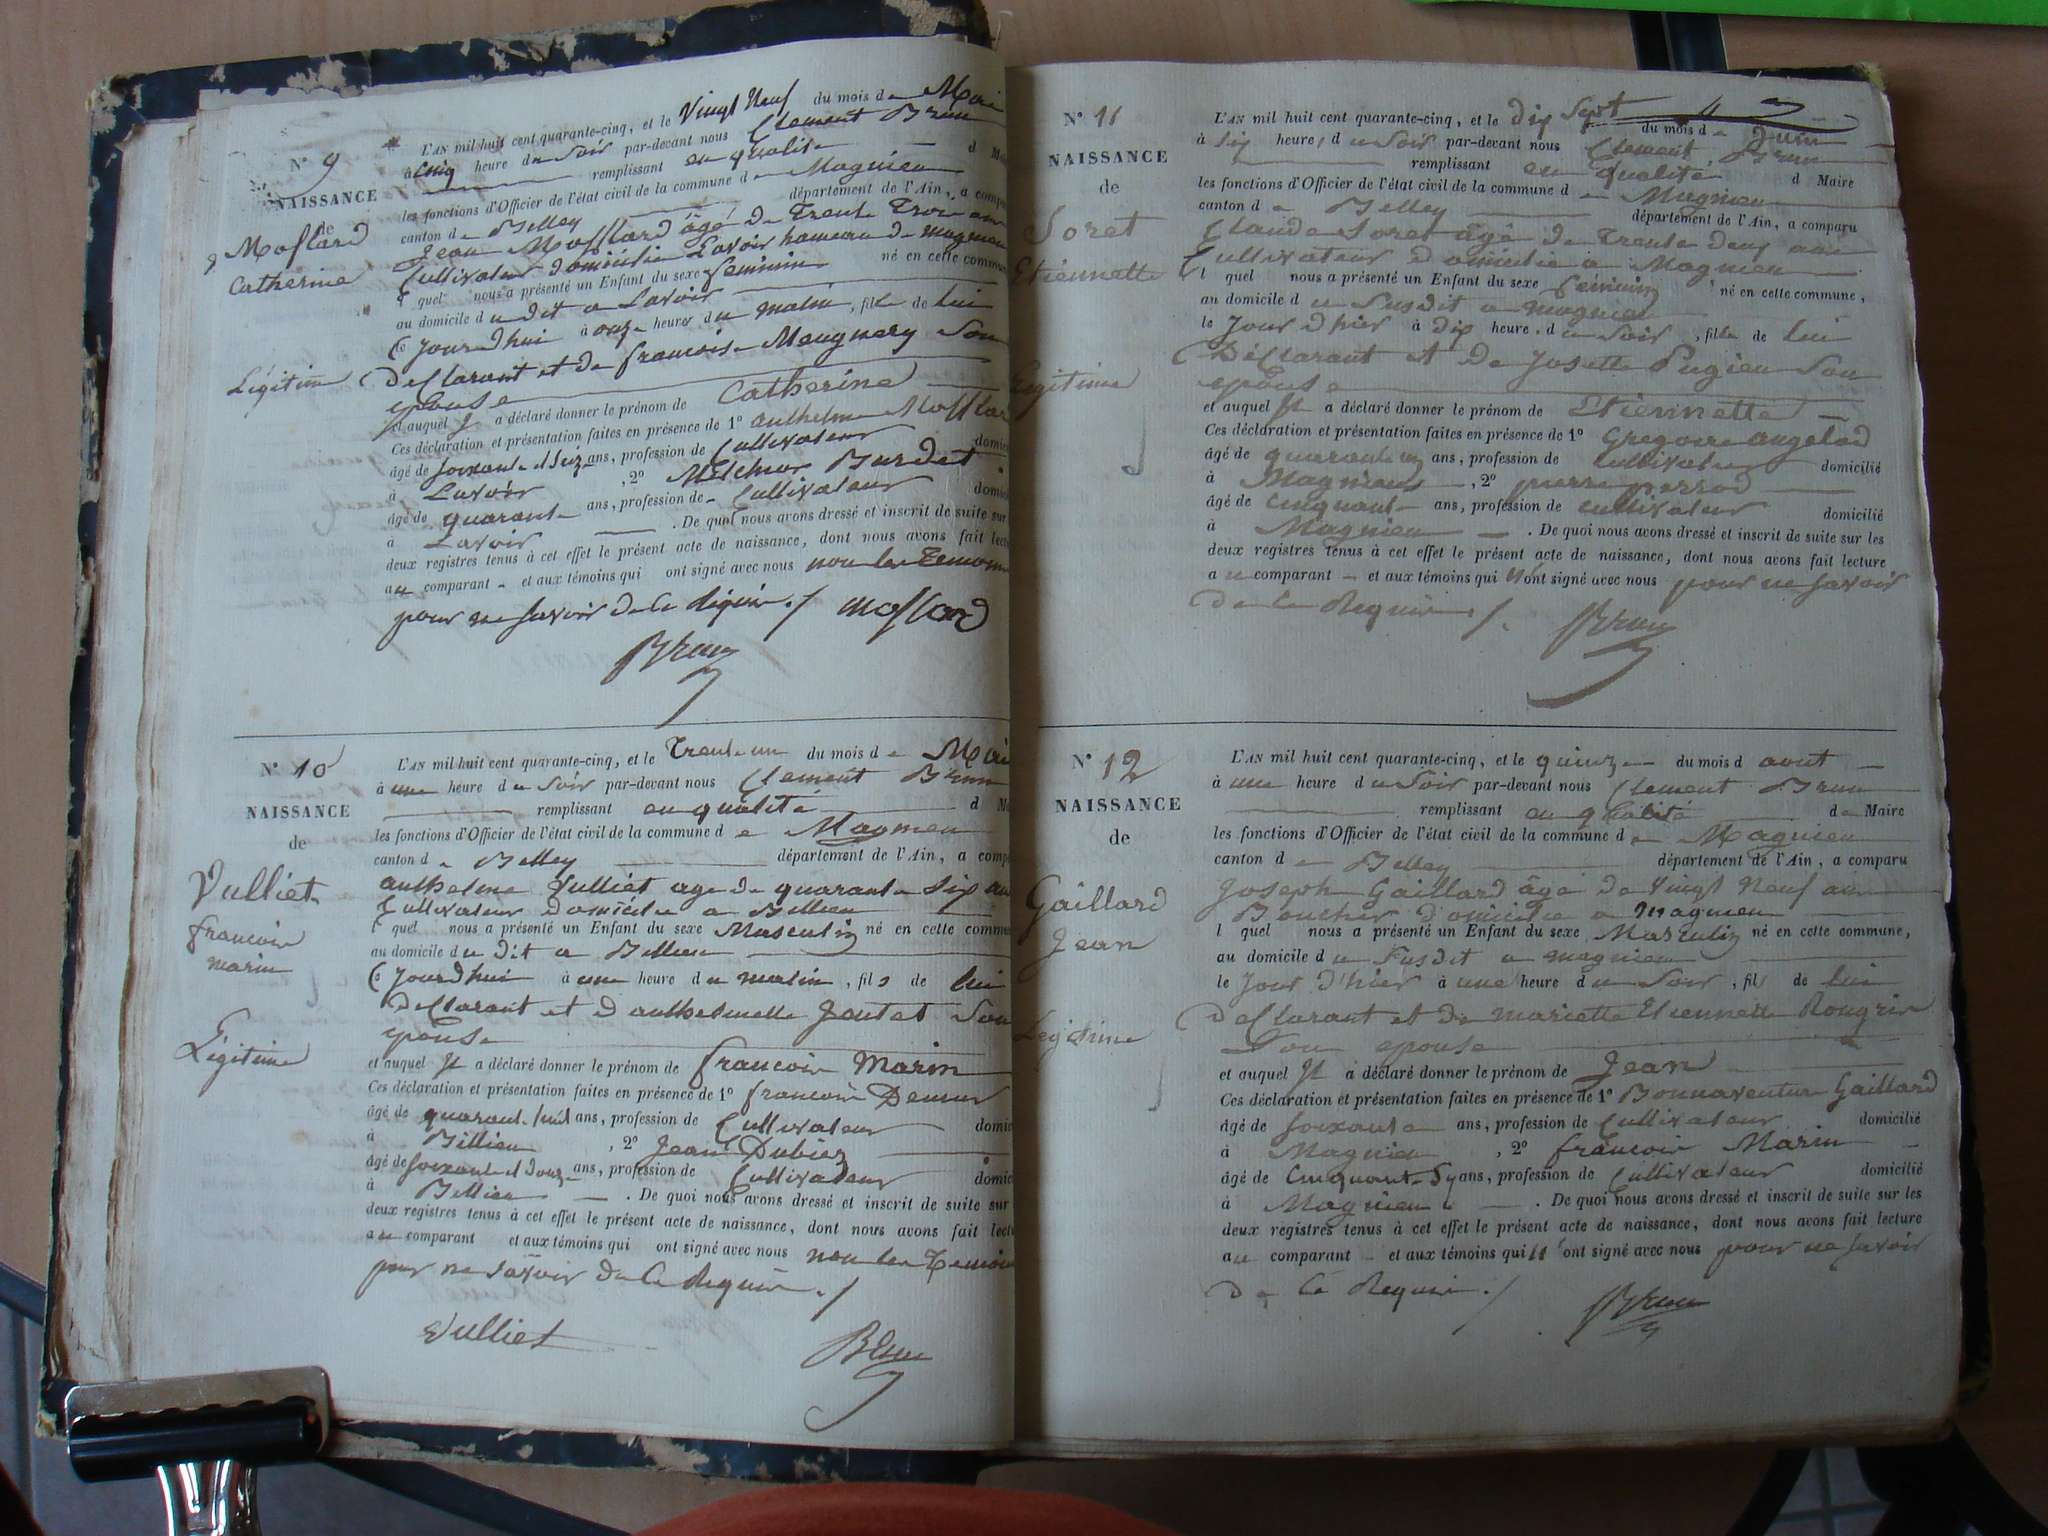 N° 9
NAISSANCE
de
Mossard
Catherine
Légitime
L'AN mil huit cent quarante-cinq, et le Vingt Neuf du mois de Mai
à cinq heure du Soir par-devant nous Clement Brun
remplissant en qualité d M
les fonctions d'Officier de l'état civil de la commune de Magnieu
canton de Belley département de l'Ain, a compa
Jean Mossard âgé de Trente Trois ans
Cultivateur domicilié Lavoir hameau de magnieu
l quel nous a présenté un Enfant du sexe feminin né en cette commun
au domicile du dit a Lavoir
Ce jourdhui à onze heures du matin, fille de lui
Declarant et de francoise Maugnery Son
epouse
et auquel Il a déclaré donner le prénom de Catherine
Ces déclaration et présentation faites en présence de 1° anthelme Mossar
âgé de soixante et seize ans, profession de Cultivateur domici
à Lavoir , 2° Melchior Burdet
âgé de quarante ans, profession de Cultivateur domici
à Lavoir . De quoi nous avons dressé et inscrit de suite sur l
deux registres tenus à cet effet le présent acte de naissance, dont nous avons fait lectu
au comparant et aux témoins qui ont signé avec nous non les Temoins
pour ne savoir de ce Requis ./ Mossard
Brun
N° 10
NAISSANCE
de
Vulliet
francois
marin
Légitime
L'AN mil huit cent quarante-cinq, et le Trente un du mois de Mai
à une heure du Soir par-devant nous Clement Brun
remplissant en qualité d M
les fonctions d'Officier de l'état civil de la commune d e Magnieu
canton d e Belley département de l'Ain, a compa
anthelme Vulliet age de quarante Six ans
Cultivateur Domicilié a Billieu
l quel nous a présenté un Enfant du sexe Masculin né en cette commun
au domicile du dit a Billieu
Ce jourdhui à une heure du matin, fils de lui
Declarant et d'anthelmette Jentet Son
epouse
et auquel Il a déclaré donner le prénom de francois Marin
Ces déclaration et présentation faites en présence de 1° francois Demeur
âgé de quarante huit ans, profession de Cultivateur domici
à Billieu , 2° Jean Dubiez
âgé de soixante et douze ans, profession de Cultivateur domici
à Billieu . De quoi nous avons dressé et inscrit de suite sur
deux registres tenus à cet effet le présent acte de naissance, dont nous avons fait lectu
au comparant et aux témoins qui ont signé avec nous non les Temoins
pour ne savoir de ce Requis ./
Vulliet Brun
N° 11
NAISSANCE
de
Soret
Etiennette
Legitime
L'AN mil huit cent quarante-cinq, et le dix Sept du mois de Juin
à six heure, du Soir par-devant nous Clement Brun
remplissant en qualité d Maire
les fonctions d'Officier de l'état civil de la commune d e Magnieu
canton d e Belley département de l'Ain, a comparu
Claude Soret âgé de Trente deux ans
Cultivateur Domicilié a Magnieu
l quel nous a présenté un Enfant du sexe féminin né en cette commune,
au domicile d u Susdit a magnieu
le Jour d'hier à dix heure, du Soir, fille de lui
Déclarant et De Josette Pugieu Son
epouse
et auquel Il a déclaré donner le prénom de Etiennette
Ces déclaration et présentation faites en présence de 1° Gregoire angelod
âgé de quarante un ans, profession de Cultivateur domicilié
à Magnieu , 2° pierre perrod
âgé de Cinquante ans, profession de cultivateur domicilié
à Magnieu . De quoi nous avons dressé et inscrit de suite sur les
deux registres tenus à cet effet le présent acte de naissance, dont nous avons fait lecture
au comparant et aux témoins qui n'ont signé avec nous pour ne savoir
de ce Requis ./. Brun
N° 12
NAISSANCE
de
Gaillard
Jean
Legitime
L'AN mil huit cent quarante-cinq, et le quinze du mois d aout
à une heure du Soir par-devant nous Clement Brun
remplissant en qualité de Maire
les fonctions d'Officier de l'état civil de la commune d e Magnieu
canton d e Belley département de l'Ain, a comparu
Joseph Gaillard âgé de Vingt Neuf ans
Boucher Domicilié a magnieu
l quel nous a présenté un Enfant du sexe Masculin né en cette commune,
au domicile du Susdit a magnieu
le Jour d'hier à une heure du Soir, fil de lui
Declarant et de mariette Etiennette Rougrin
Son epouse
et auquel Il a déclaré donner le prénom de Jean
Ces déclaration et présentation faites en présence de 1° Bonnaventure Gaillard
âgé de soixante ans, profession de Cultivateur domicilié
à Magnieu , 2° francois Marin
âgé de Cinquante Six ans, profession de Cultivateur domicilié
à Magnieu . De quoi nous avons dressé et inscrit de suite sur les
deux registres tenus à cet effet le présent acte de naissance, dont nous avons fait lecture
au comparant et aux témoins qui n'ont signé avec nous pour ne savoir
de ce Requis ./ Brun